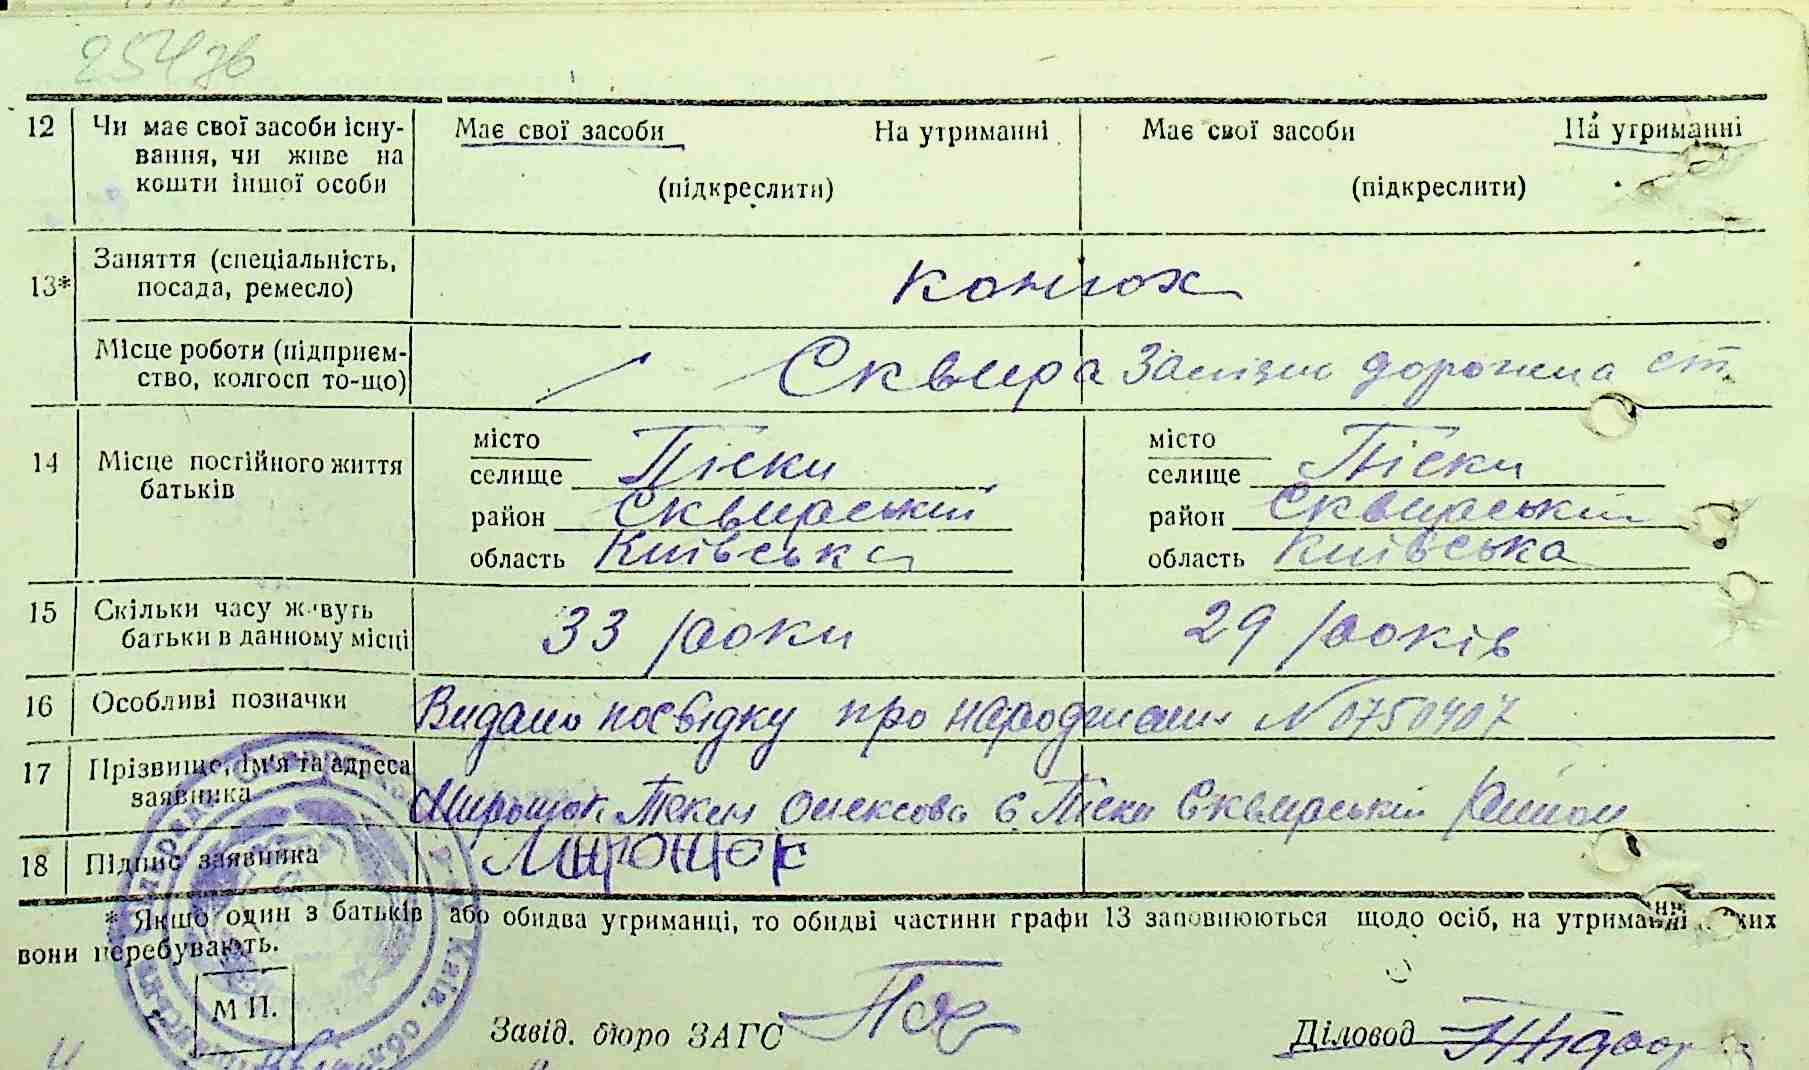 254 зв
12 Чи має свої засоби існу- Має свої засоби На утриманні Має свої засоби На утриманні
вання, чи живе на
кошти іншої особи (підкреслити) (підкреслити)
13* Заняття (спеціальність,
посада, ремесло) конюх
Місце роботи (підприєм-
ство, колгосп то-що) Сквира Залізно дорожна ст.
14 Місце постійного життя батьків
місто місто
селище Піски селище Піски
район Сквирський район Сквирський
область Київська область Київська
15 Скільки часу живуть
батьки в данному місці 33 роки 29 років
16 Особливі позначки Видано посвідку про народження N 0750407
17 Прізвище, ім'я та адреса
заявника Миронюк Олексова с Піски Сквирський район
18 Підпис заявника Миронюк
* Якщо один з батьків або обидва утриманці, то обидві частини графи 13 заповнюються щодо осіб, на утриманні яких
вони перебувають.
М П.
Завід. бюро ЗАГС Діловод